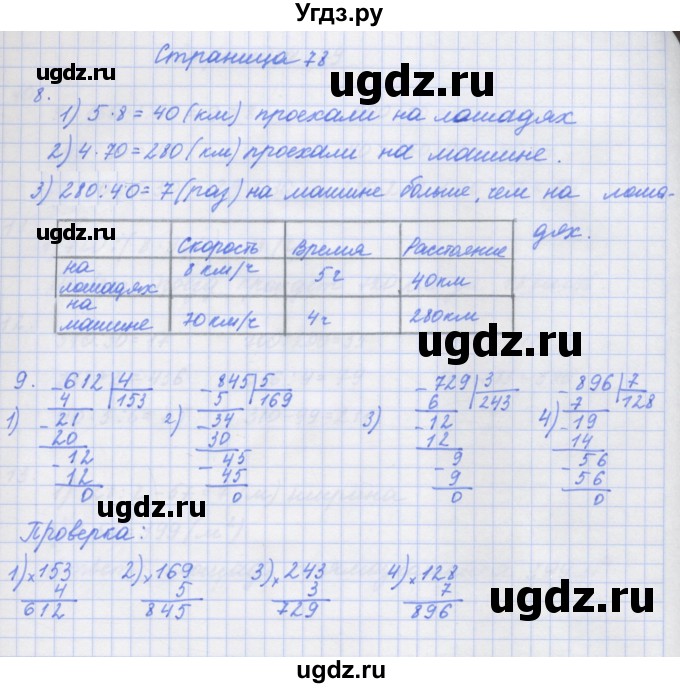 Угдз.ру
Страница 78
ugdz.ru
ugdz.ru
8.
1) 5·8=40(км) проехали на лошадях
2) 4·70=280(км) проехали на машине.
3) 280:40=7(раз) на машине больше, чем на лоша-
дях.
Скорость Время Расстояние
на лошадях 8 км/ч 5г 40км
на машине 70км/ч 4г 280км
ugdz.ru
ugdz.ru
9.
1) 612 4
4 153
21
20
12
12
0
2) 845 5
5 169
34
30
45
45
0
3) 729 3
6 243
12
12
9
9
0
4) 896 7
7 128
19
14
56
56
0
ugdz.ru
ugdz.ru
Проверка:
1) ×153
4
612
2) ×169
5
845
3) ×243
3
729
4) ×128
7
896
ugdz.ru
ugdz.ru
ugdz.ru